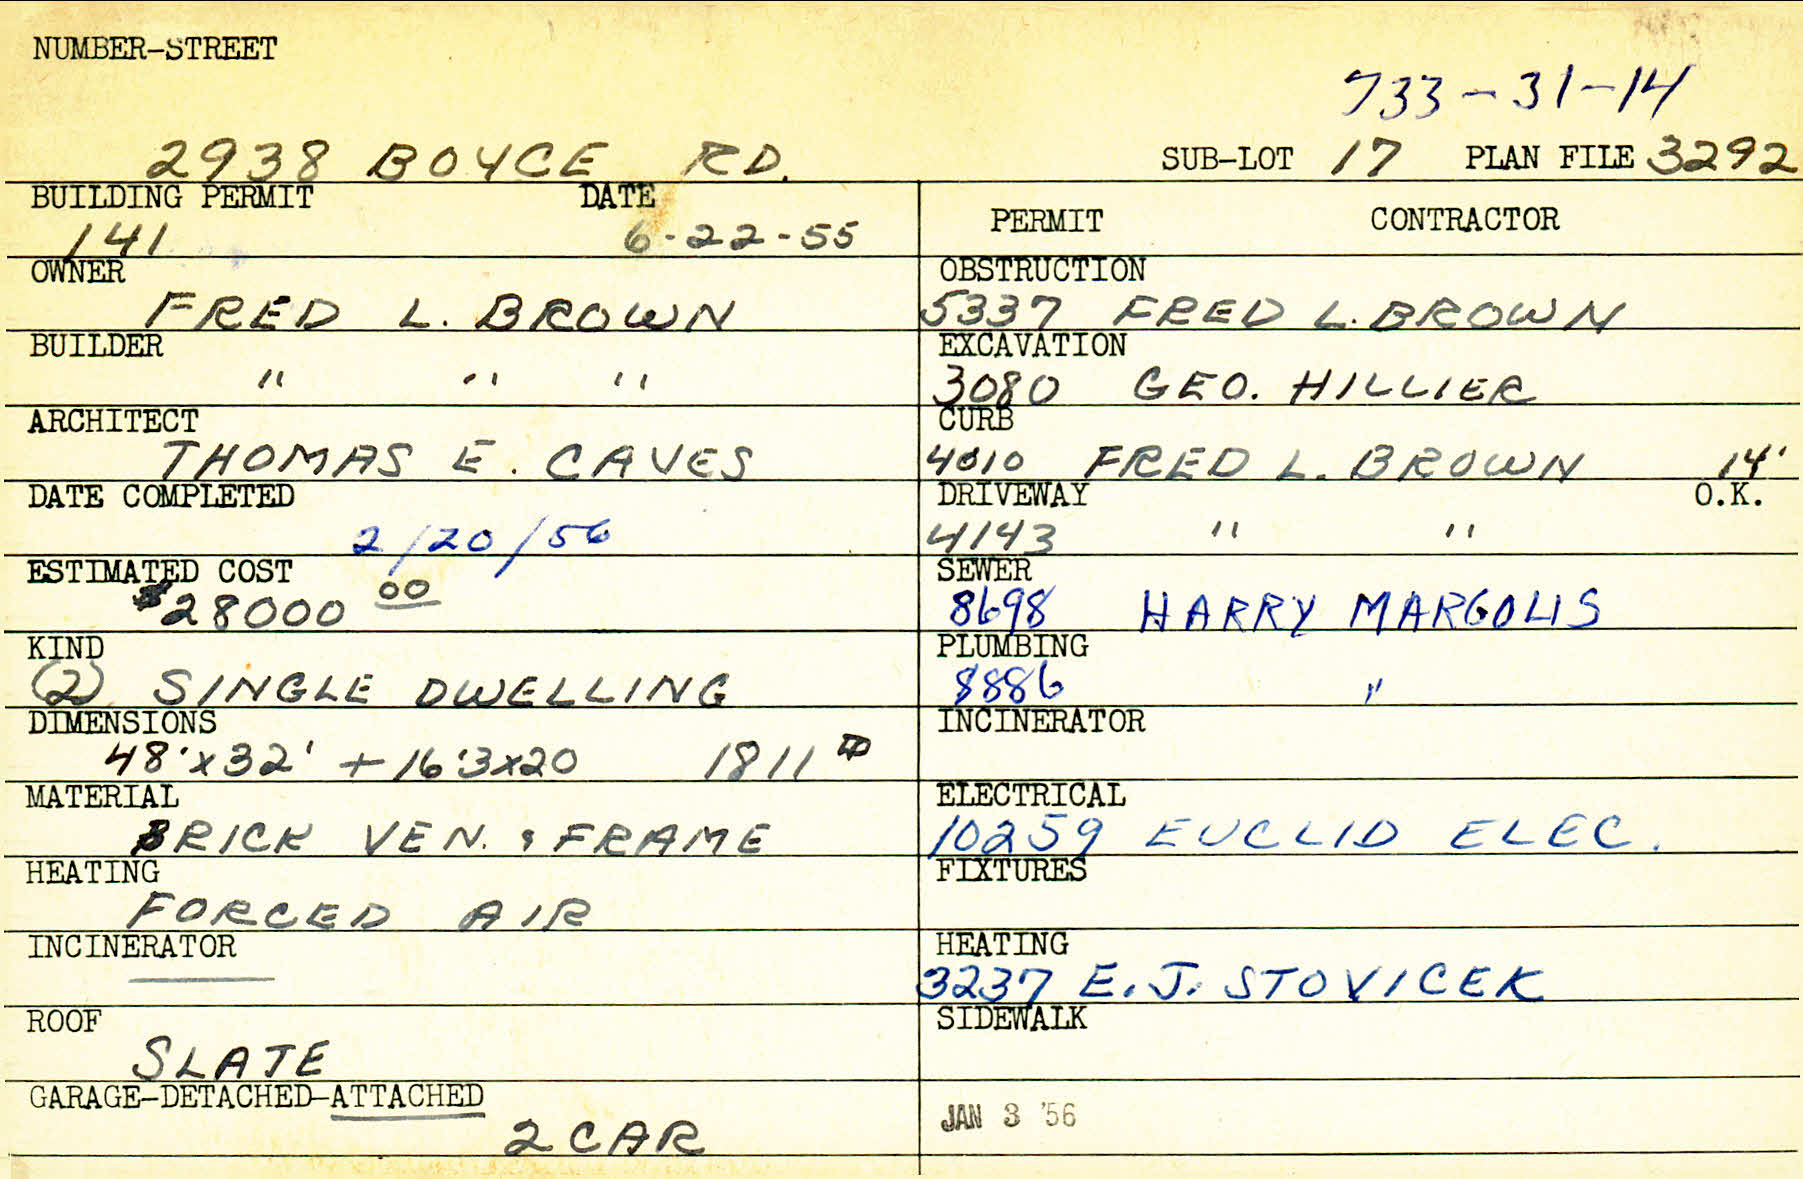 NUMBER-STREET
733-31-14
2938 BOYCE RD.
SUB-LOT 17 PLAN FILE 3292
BUILDING PERMIT DATE
141 6-22-55
OWNER
FRED L. BROWN
BUILDER
" " "
ARCHITECT
THOMAS E. CAVES
DATE COMPLETED
2/20/56
ESTIMATED COST
$28000 00
KIND
(2) SINGLE DWELLING
DIMENSIONS
48'x32' + 16'3x20 1811
MATERIAL
BRICK VEN. & FRAME
HEATING
FORCED AIR
INCINERATOR
ROOF
SLATE
GARAGE-DETACHED-ATTACHED
2 CAR
PERMIT CONTRACTOR
OBSTRUCTION
5337 FRED L. BROWN
EXCAVATION
3080 GEO. HILLIER
CURB
4010 FRED L. BROWN 14'
DRIVEWAY O.K.
4143 " "
SEWER
8698 HARRY MARGOLIS
PLUMBING
8886 "
INCINERATOR
ELECTRICAL
10259 EUCLID ELEC.
FIXTURES
HEATING
3237 E. J. STOVICEK
SIDEWALK
JAN 3 '56